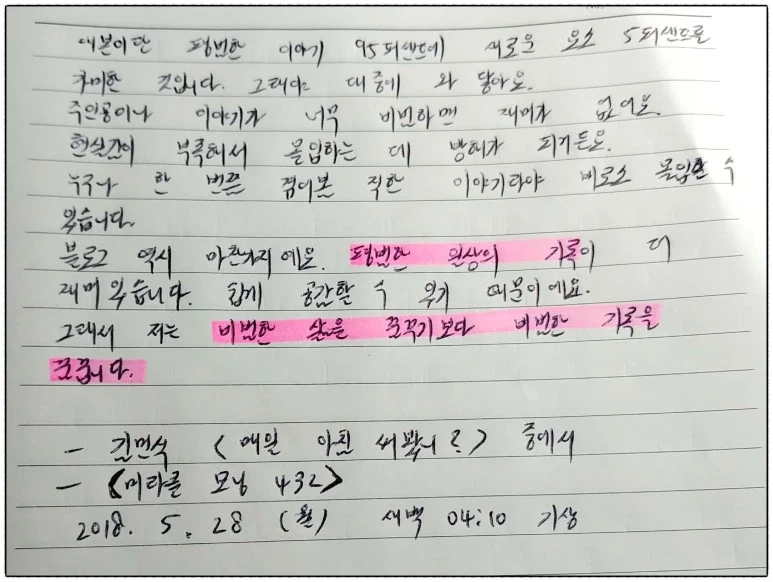 대본이란 평범한 이야기 95퍼센트에 새로운 요소 5퍼센트를
가미한 것입니다. 그래야 대중에 와 닿아요.
주인공이나 이야기가 너무 비범하면 재미가 없어요.
현실감이 부족해서 몰입하는 데 방해가 되거든요.
누구나 한 번쯤 겪어본 직한 이야기라야 비로소 몰입할 수
있습니다.
블로그 역시 마찬가지예요. 평범한 일상의 기록이 더
재미 있습니다. 쉽게 공감할 수 있기 때문이에요.
그래서 저는 비범한 삶을 꿈꾸기보다 비범한 기록을
꿈꿉니다.
- 김민식 <매일 아침 써봤니?> 중에서
- <미라클 모닝 432>
2018. 5. 28 (월) 새벽 04:10 기상